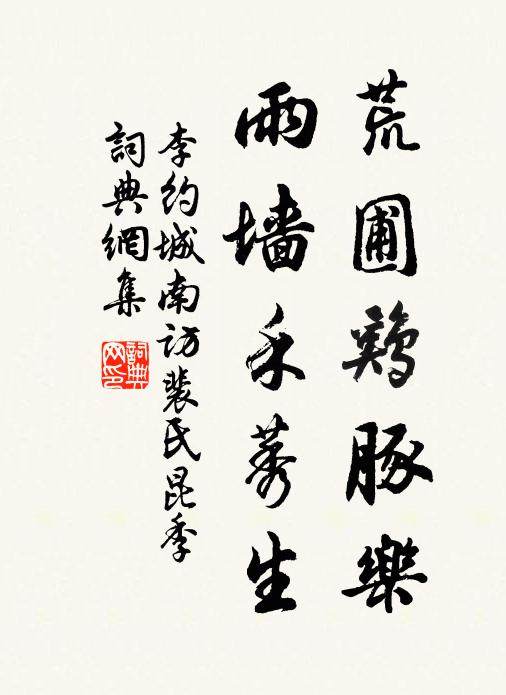 荒圃鷄豚樂
雨墙禾莠生
李約城南訪裴氏昆季
詞典網集
詞典网印